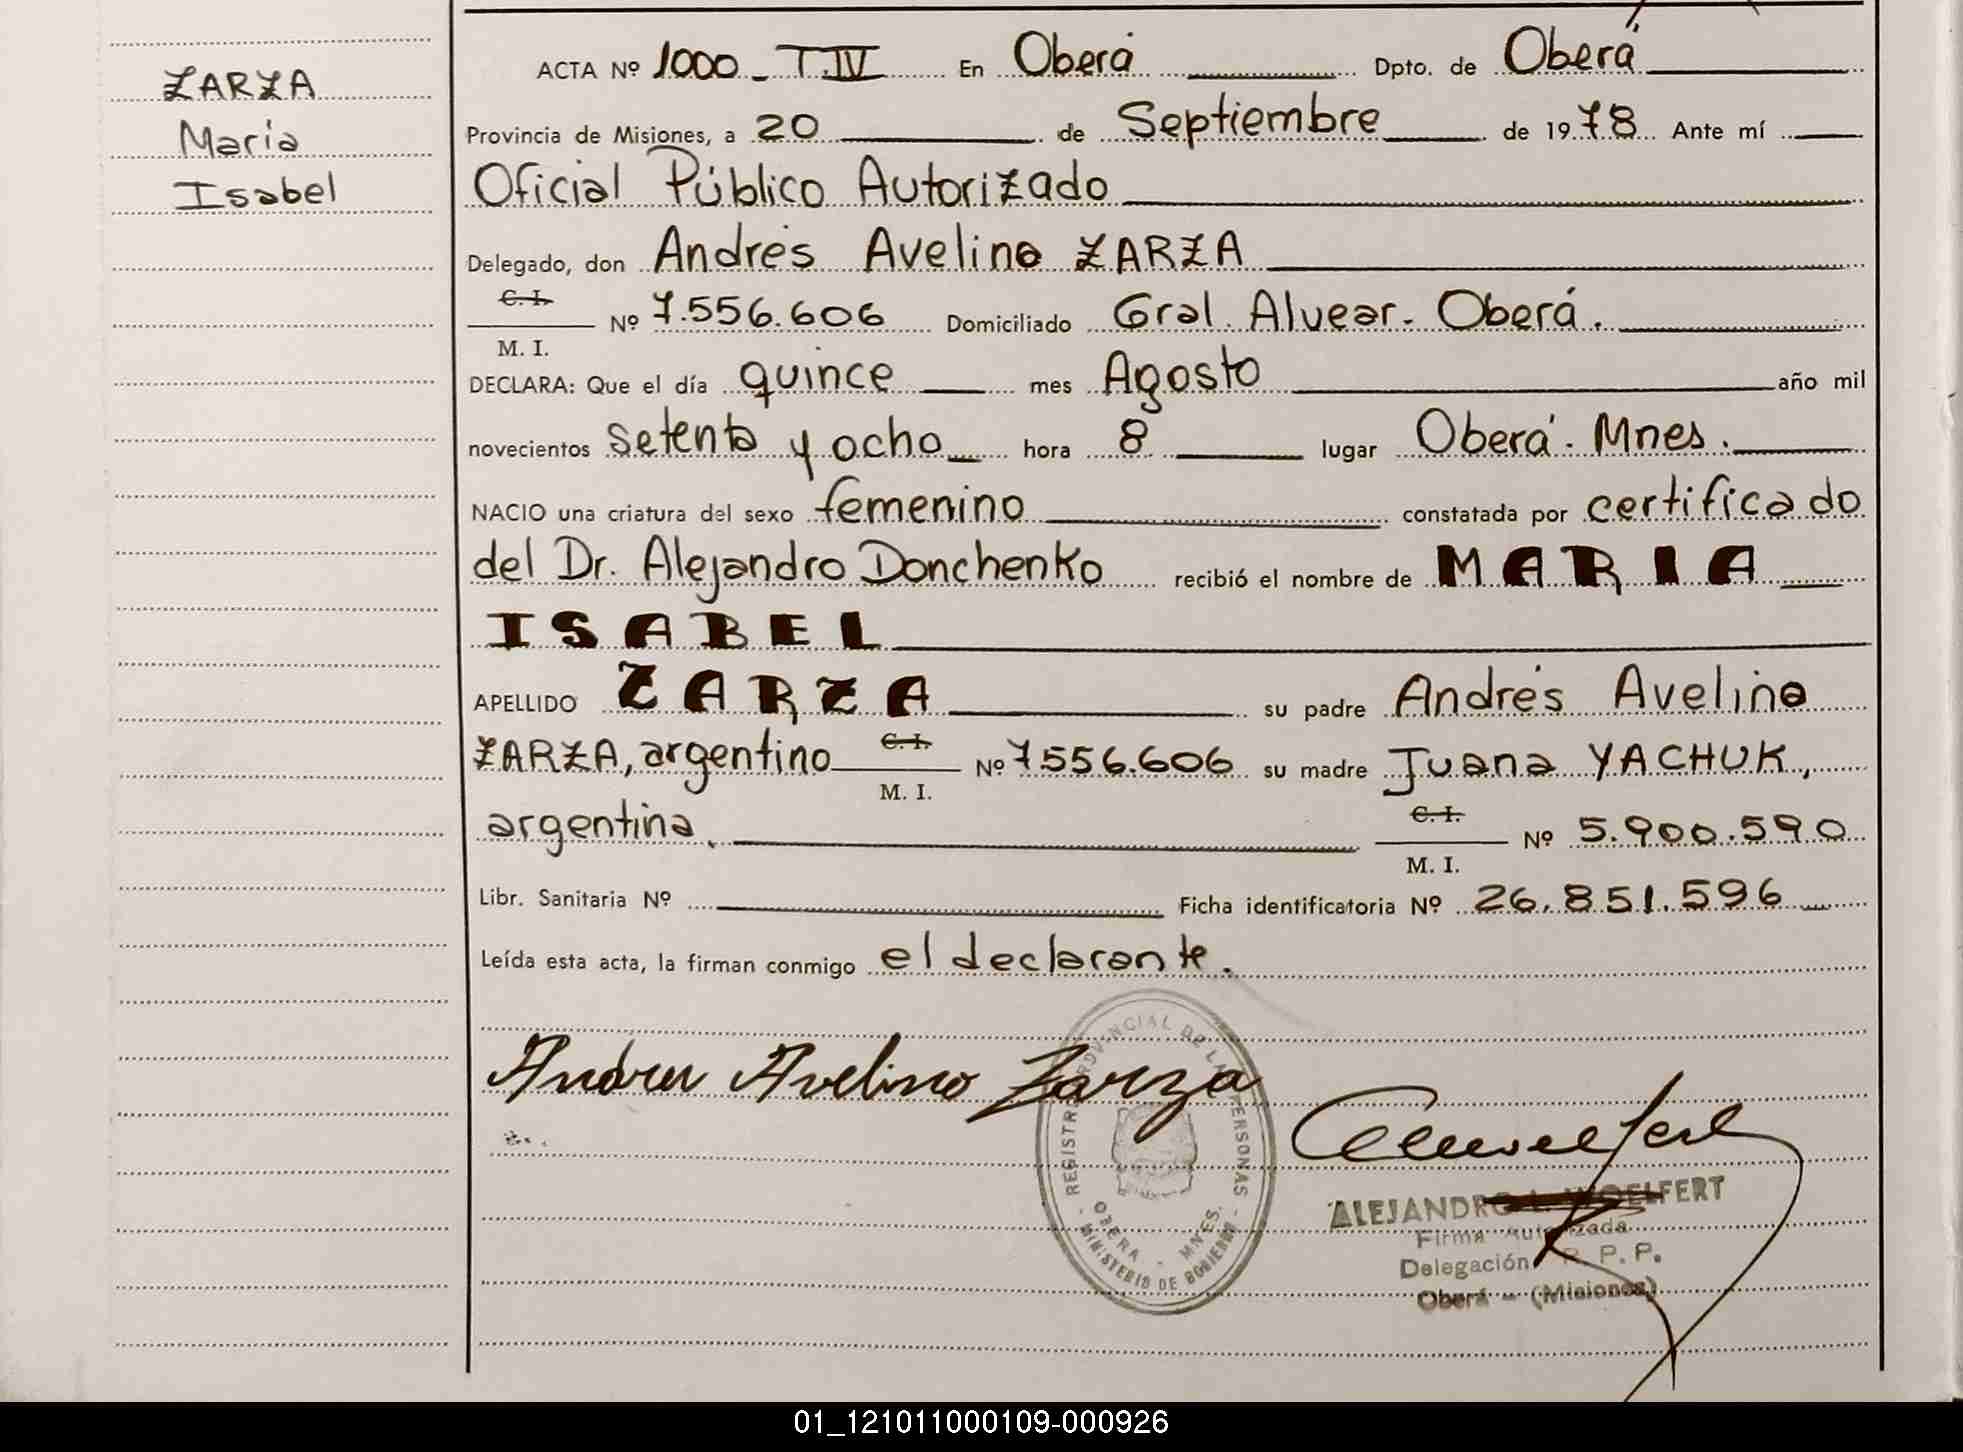 ZARZA
María
Isabel
ACTA Nº 1000 - T.IV En Oberá Dpto. de Oberá
Provincia de Misiones, a 20 de Septiembre de 1978 Ante mí
Oficial Público Autorizado
Delegado, don Andrés Avelino ZARZA
C. I.
Nº 7.556.606 Domiciliado Gral. Alvear - Oberá.
M. I.
DECLARA: Que el día quince mes Agosto año mil
novecientos setenta y ocho hora 8 lugar Oberá - Mnes.
NACIO una criatura del sexo femenino constatada por certificado
del Dr. Alejandro Donchenko recibió el nombre de MARIA
ISABEL
APELLIDO ZARZA su padre Andrés Avelino
ZARZA, argentino C. I. Nº 7.556.606 su madre Juana YACHUK,
M. I.
argentina. C. I. Nº 5.900.590
M. I.
Libr. Sanitaria Nº Ficha identificatoria Nº 26.851.596
Leída esta acta, la firman conmigo el declarante.
Andres Avelino Zarza
REGISTRO PROVINCIAL DE LAS PERSONAS
OBERA - MNES.
- MINISTERIO DE GOBIERNO -
ALEJANDRO L. WOELFERT
Firma Autorizada
Delegación R. P. P.
Oberá - (Misiones)
01_121011000109-000926